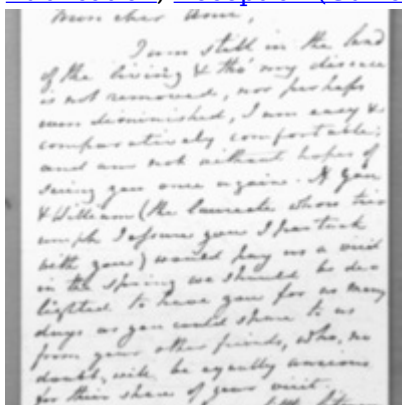 Mon cher Ami,
I am still in the land
of the living & tho' my disease
is not removed, nor perhaps
even diminished, I am easy &
comparatively comfortable;
and am not without hopes of
seeing you once again. If you
& William (the laureate whose tri-
umph I assure you I partook
with you) would pay us a visit
in the spring we should be de-
lighted to have you for as many
days as you could spare to us
from your other friends, who, no
doubt, will be equally anxious
for their share of your visit.